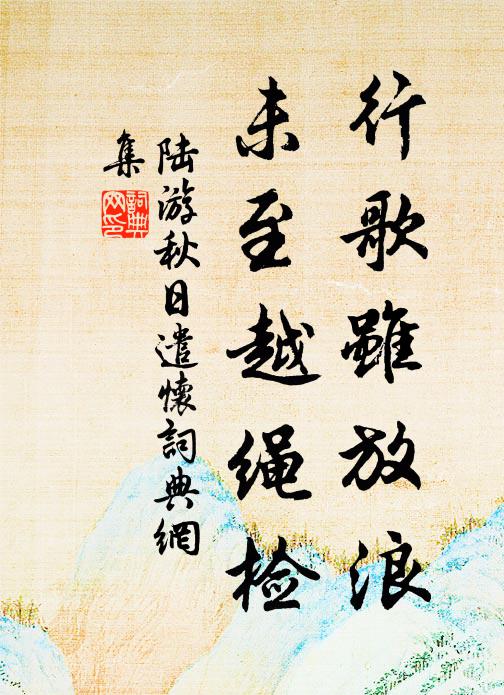 行歌雖放浪
未至越绳检
陆游秋日遣懷詞典網
集
詞典
网印